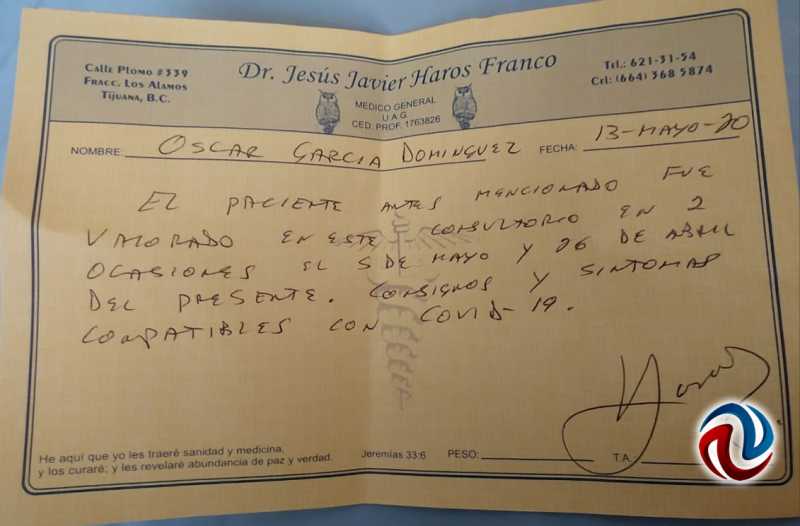 Calle Plomo #339
Fracc. Los Alamos
Tijuana, B.C.
Dr. Jesús Javier Haros Franco
MEDICO GENERAL
U A G
CED. PROF. 1763826
Tel.: 621-31-54
Cel: (664) 368 5874
NOMBRE: OSCAR GARCIA DOMINGUEZ FECHA: 13-MAYO-20
EL PACIENTE ANTES MENCIONADO FUE
VALORADO EN ESTE CONSULTORIO EN 2
OCASIONES EL 5 DE MAYO Y 26 DE ABRIL
DEL PRESENTE. CON SIGNOS Y SINTOMAS
COMPATIBLES CON COVID-19.
Haros
He aquí que yo les traeré sanidad y medicina,
y los curaré; y les revelaré abundancia de paz y verdad.
Jeremías 33:6 PESO: T.A.